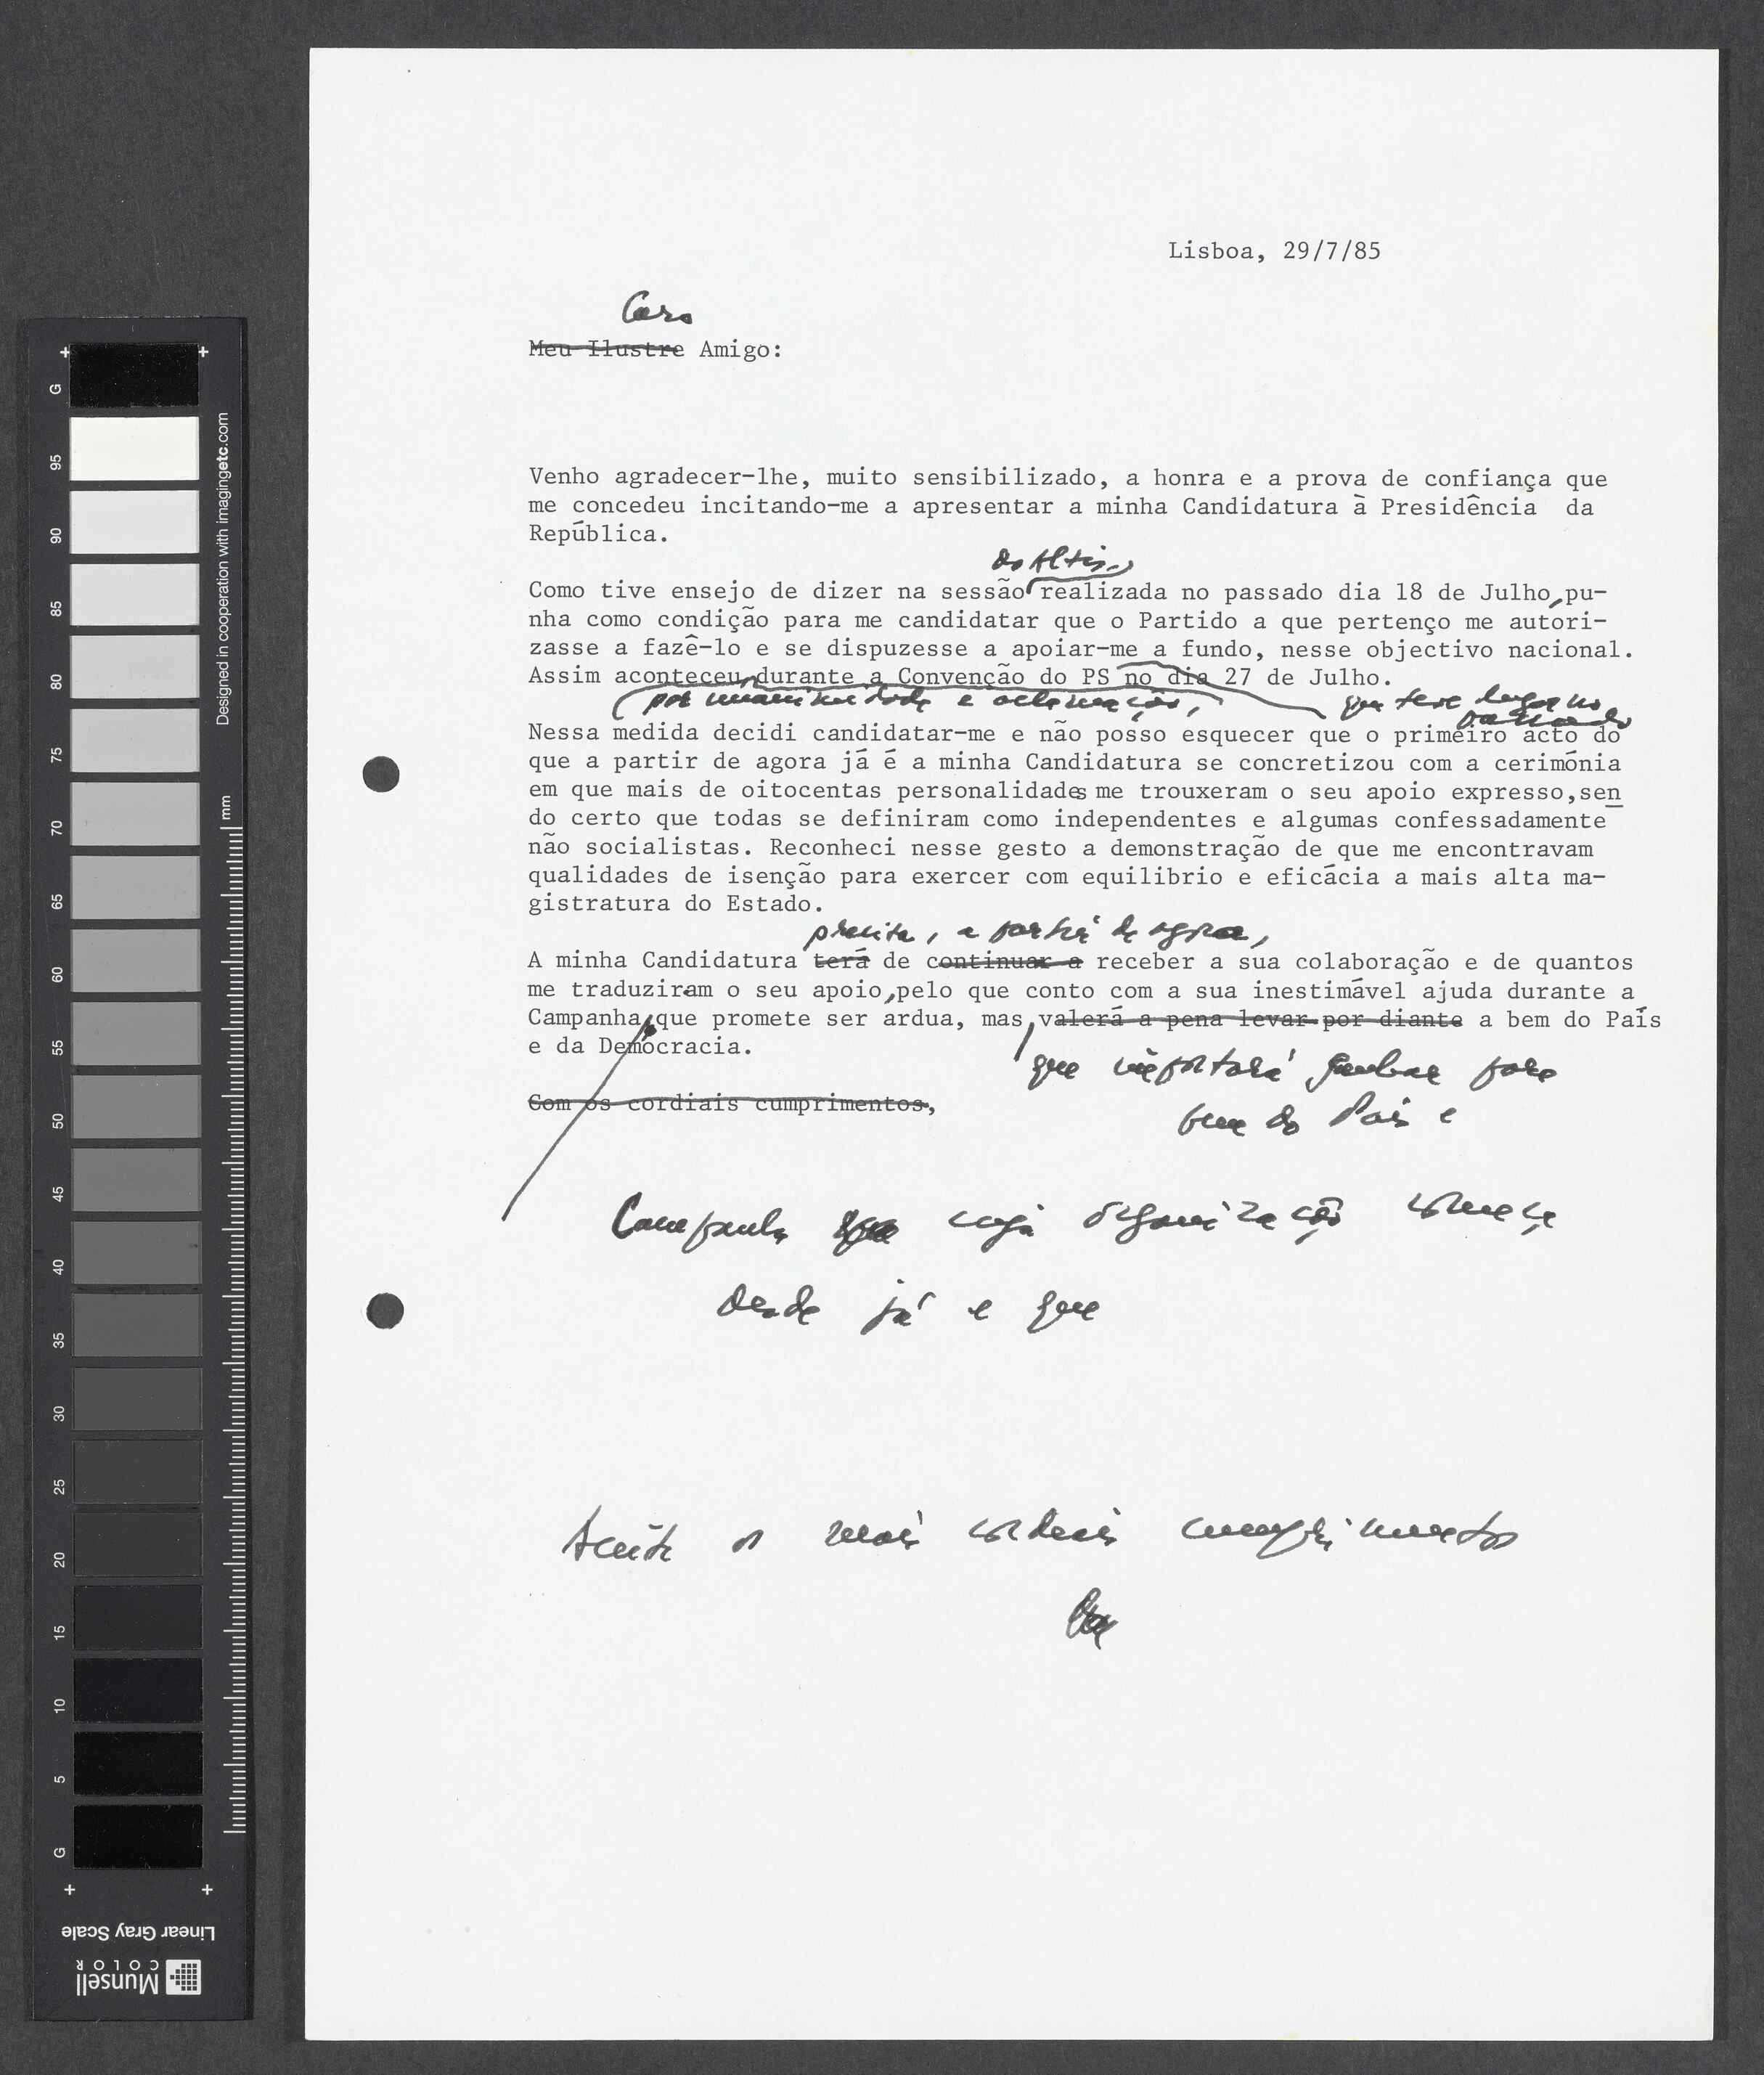 Lisboa, 29/7/85
Caro
Meu Ilustre Amigo:
Venho agradecer-lhe, muito sensibilizado, a honra e a prova de confiança que
me concedeu incitando-me a apresentar a minha Candidatura à Presidência da
República.
do Altis
Como tive ensejo de dizer na sessão realizada no passado dia 18 de Julho, pu-
nha como condição para me candidatar que o Partido a que pertenço me autori-
zasse a fazê-lo e se dispuzesse a apoiar-me a fundo, nesse objectivo nacional.
Assim aconteceu, durante a Convenção do PS no dia 27 de Julho.
por unanimidade e aclamação, que teve lugar no
passado
Nessa medida decidi candidatar-me e não posso esquecer que o primeiro acto do
que a partir de agora já é a minha Candidatura se concretizou com a cerimónia
em que mais de oitocentas personalidades me trouxeram o seu apoio expresso,sen
do certo que todas se definiram como independentes e algumas confessadamente
não socialistas. Reconheci nesse gesto a demonstração de que me encontravam
qualidades de isenção para exercer com equilibrio e eficácia a mais alta ma-
gistratura do Estado.
precisa, a partir de agora,
A minha Candidatura terá de continuar a receber a sua colaboração e de quantos
me traduziram o seu apoio, pelo que conto com a sua inestimável ajuda durante a
Campanha, que promete ser ardua, mas, valerá a pena levar por diante a bem do País
e da Democracia.
que importará ganhar para
Com os cordiais cumprimentos,
bem do País e
Campanha que cuja organização começa
desde já e que
Aceite os mais cordiais cumprimentos
Designed in cooperation with imagingetc.com
mm
G
95
90
85
80
75
70
65
60
55
50
45
40
35
30
25
20
15
10
5
G
Linear Gray Scale
Munsell
COLOR